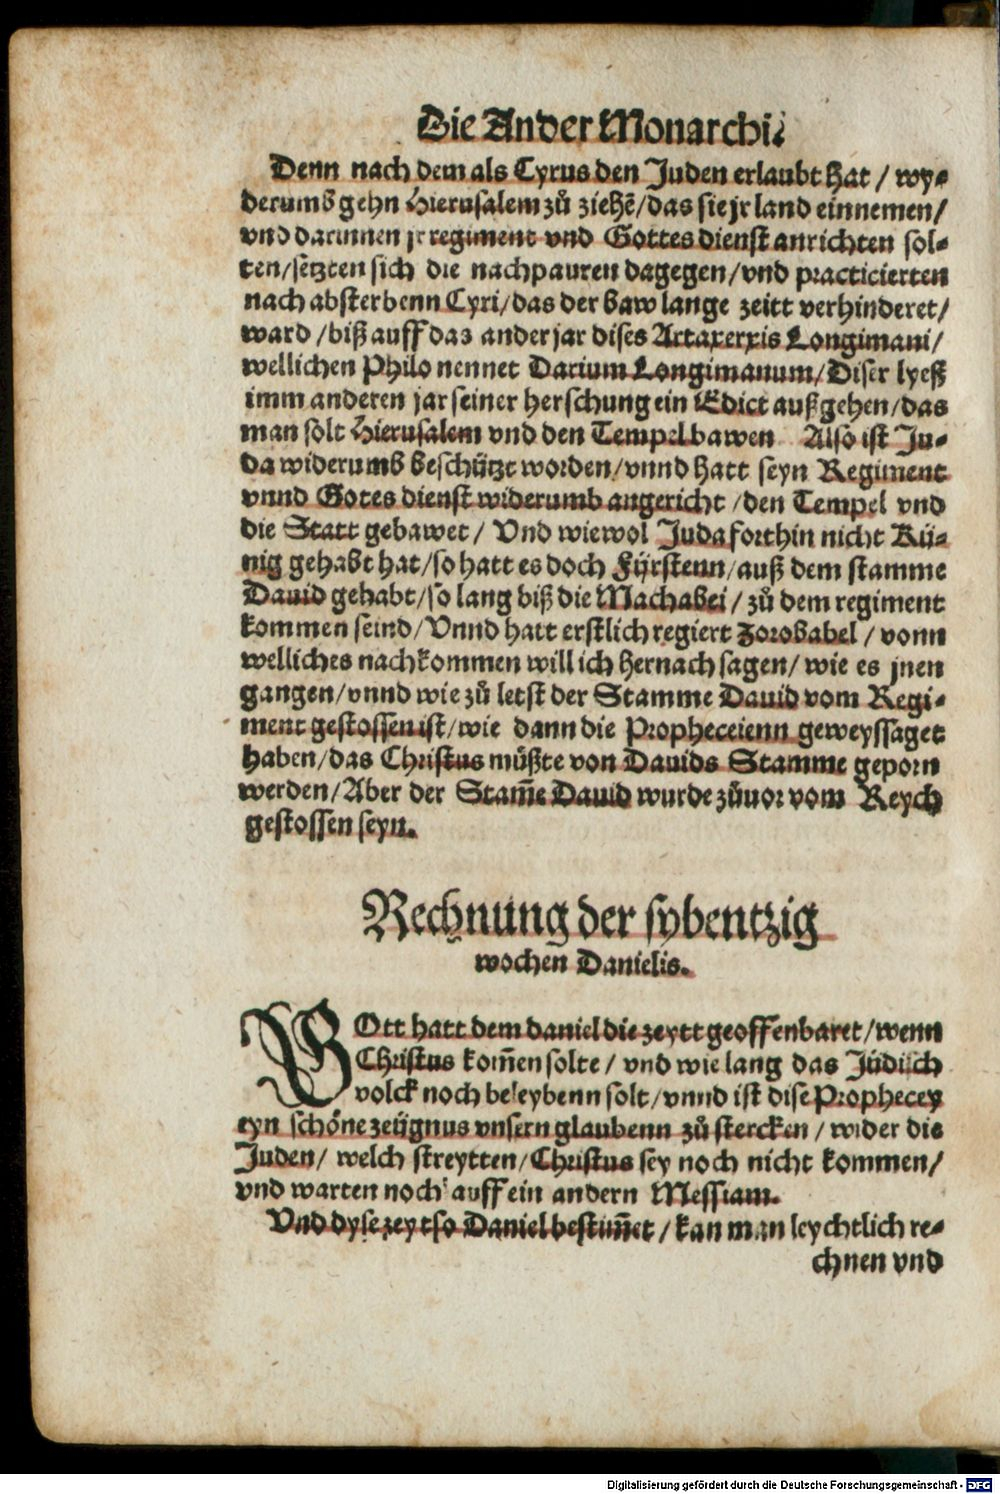 Die Ander Monarchi.
Denn nach dem als Cyrus den Juden erlaubt hat / wy-
derumb gehn Hierusalem zů ziehẽ / das sie jr land einnemen /
vnd darinnen jr regiment vnd Gottes dienst anrichten sol-
ten / setzten sich die nachpauren dagegen / vnd practicierten
nach absterbenn Cyri / das der baw lange zeitt verhinderet /
ward / biß auff das ander jar dises Artaxerxis Longimani /
wellichen Philo nennet Darium Longimanum / Diser lyeß
imm anderen jar seiner herschung ein Edict außgehen / das
man solt Hierusalem vnd den Tempel bawen   Also ist Ju-
da widerumb beschützt worden / vnnd hatt seyn Regiment
vnnd Gotes dienst widerumb angericht / den Tempel vnd
die Statt gebawet / Vnd wiewol Juda forthin nicht Kü-
nig gehabt hat / so hatt es doch Fürstenn / auß dem stamme
Dauid gehabt / so lang biß die Machabei / zů dem regiment
kommen seind / Vnnd hatt erstlich regiert Zorobabel / vonn
welliches nachkommen will ich hernach sagen / wie es jnen
gangen / vnnd wie zů letst der Stamme Dauid vom Regi-
ment gestossen ist / wie dann die Propheceienn geweyssaget
haben / das Christus müßte von Dauids Stamme geporn
werden / Aber der Stam̃e Dauid wurde zůuor vom Reych
gestossen seyn.
Rechnung der sybentzig
wochen Danielis.
GOtt hatt dem daniel die zeytt geoffenbaret / wenn
Christus kom̃en solte / vnd wie lang das Jüdisch
volck noch beleybenn solt / vnnd ist dise Prophecey
eyn schöne zeügnus vnsern glaubenn zů stercken / wider die
Juden / welch streytten / Christus sey noch nicht kommen /
vnd warten noch auff ein andern Messiam.
Vnd dyse zeyt so Daniel bestim̃et / kan man leychtlich re-
chnen vnd
Digitalisierung gefördert durch die Deutsche Forschungsgemeinschaft - DFG